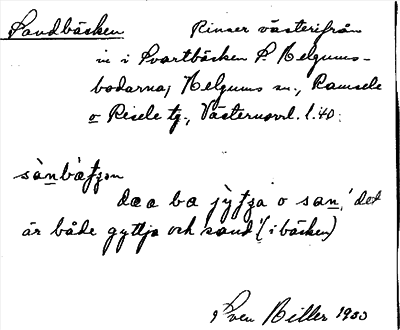 Sandbäcken Rinner västerifrån
in i Svartbäcken S. Helgums-
bodarna, Helgums sn., Ramsele
o Resele tg., Västernorrl. l. 40.
sànbàtʃen
dæ a ba jỳtʃa o san, 'det
är både gyttja och sand' (i bäcken)
Sven Biller 1930